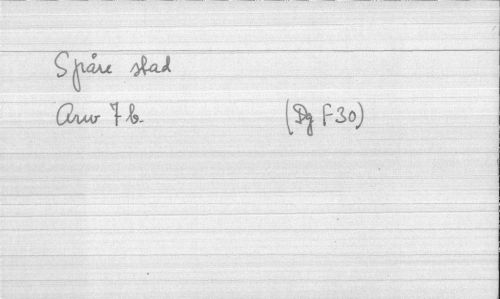 Spåre stad
Arw 7 b. (Dg F 30)